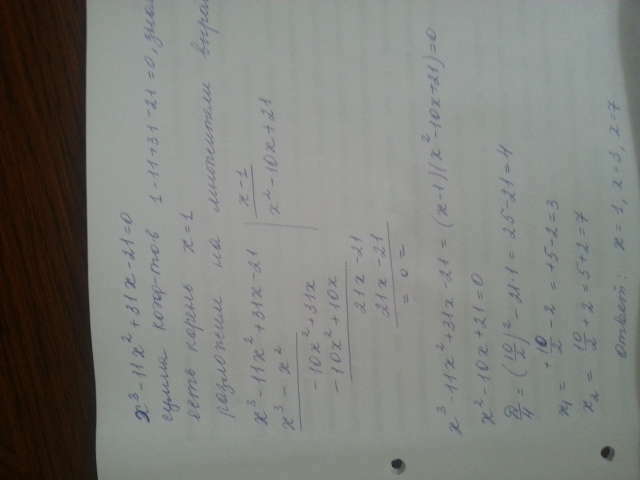 x³-11x²+31x-21=0
сумма коэф-тов 1-11+31-21=0,
есть корень x=1
разложим на множители
x³-11x²+31x-21 | x-1
x³-x² | x²-10x+21
-10x²+31x
-10x²+10x
21x-21
21x-21
= 0 =
x³-11x²+31x-21=(x-1)(x²-10x+21)=0
x²-10x+21=0
D/4=(10/2)²-21·1=25-21=4
x₁=+10/2-2=+5-2=3
x₂=10/2+2=5+2=7
Ответ: x=1, x=3, x=7